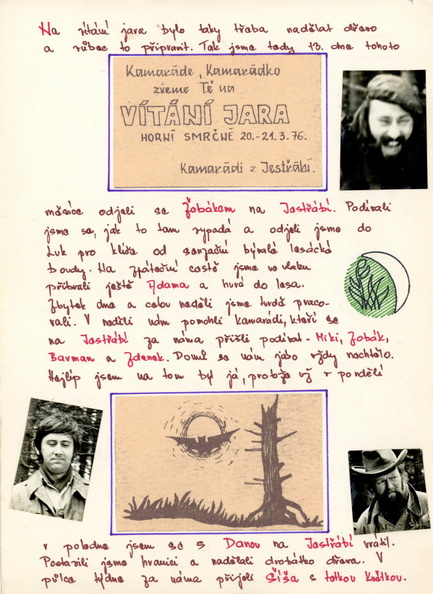 Na vítání jara bylo taky třeba nadělat dřevo
a vůbec to připravit. Tak jsme tedy 13. dne tohoto
Kamaráde, Kamarádko
zveme Tě na
VÍTÁNÍ JARA
HORNÍ SMRČNÉ 20.-21.3.76.
Kamarádi z Jestřábí.
měsíce odjeli se Zobákem na Jestřábí. Podívali
jsme se, jak to tam vypadá a odjeli jsme do
Luk pro klíče od bývalé lesácké
boudy. Na zpáteční cestě jsme ve vlaku
přibrali ještě Adama a hurá do lesa.
Zbytek dne a celou neděli jsme tvrdě praco-
vali. V neděli nám pomohli kamarádi, kteří se
na Jestřábí za náma přišli podívat - Miki, Zobák,
Barman a Zdenek. Domů se nám jako vždy nechtělo.
Nejlíp jsem na tom byl já, protože už v pondělí
v poledne jsem se s Danou na Jestřábí vrátil.
Postavili jsme hranici a nadělali drobátko dřeva. V
půlce týdne za náma přijeli Šiša s